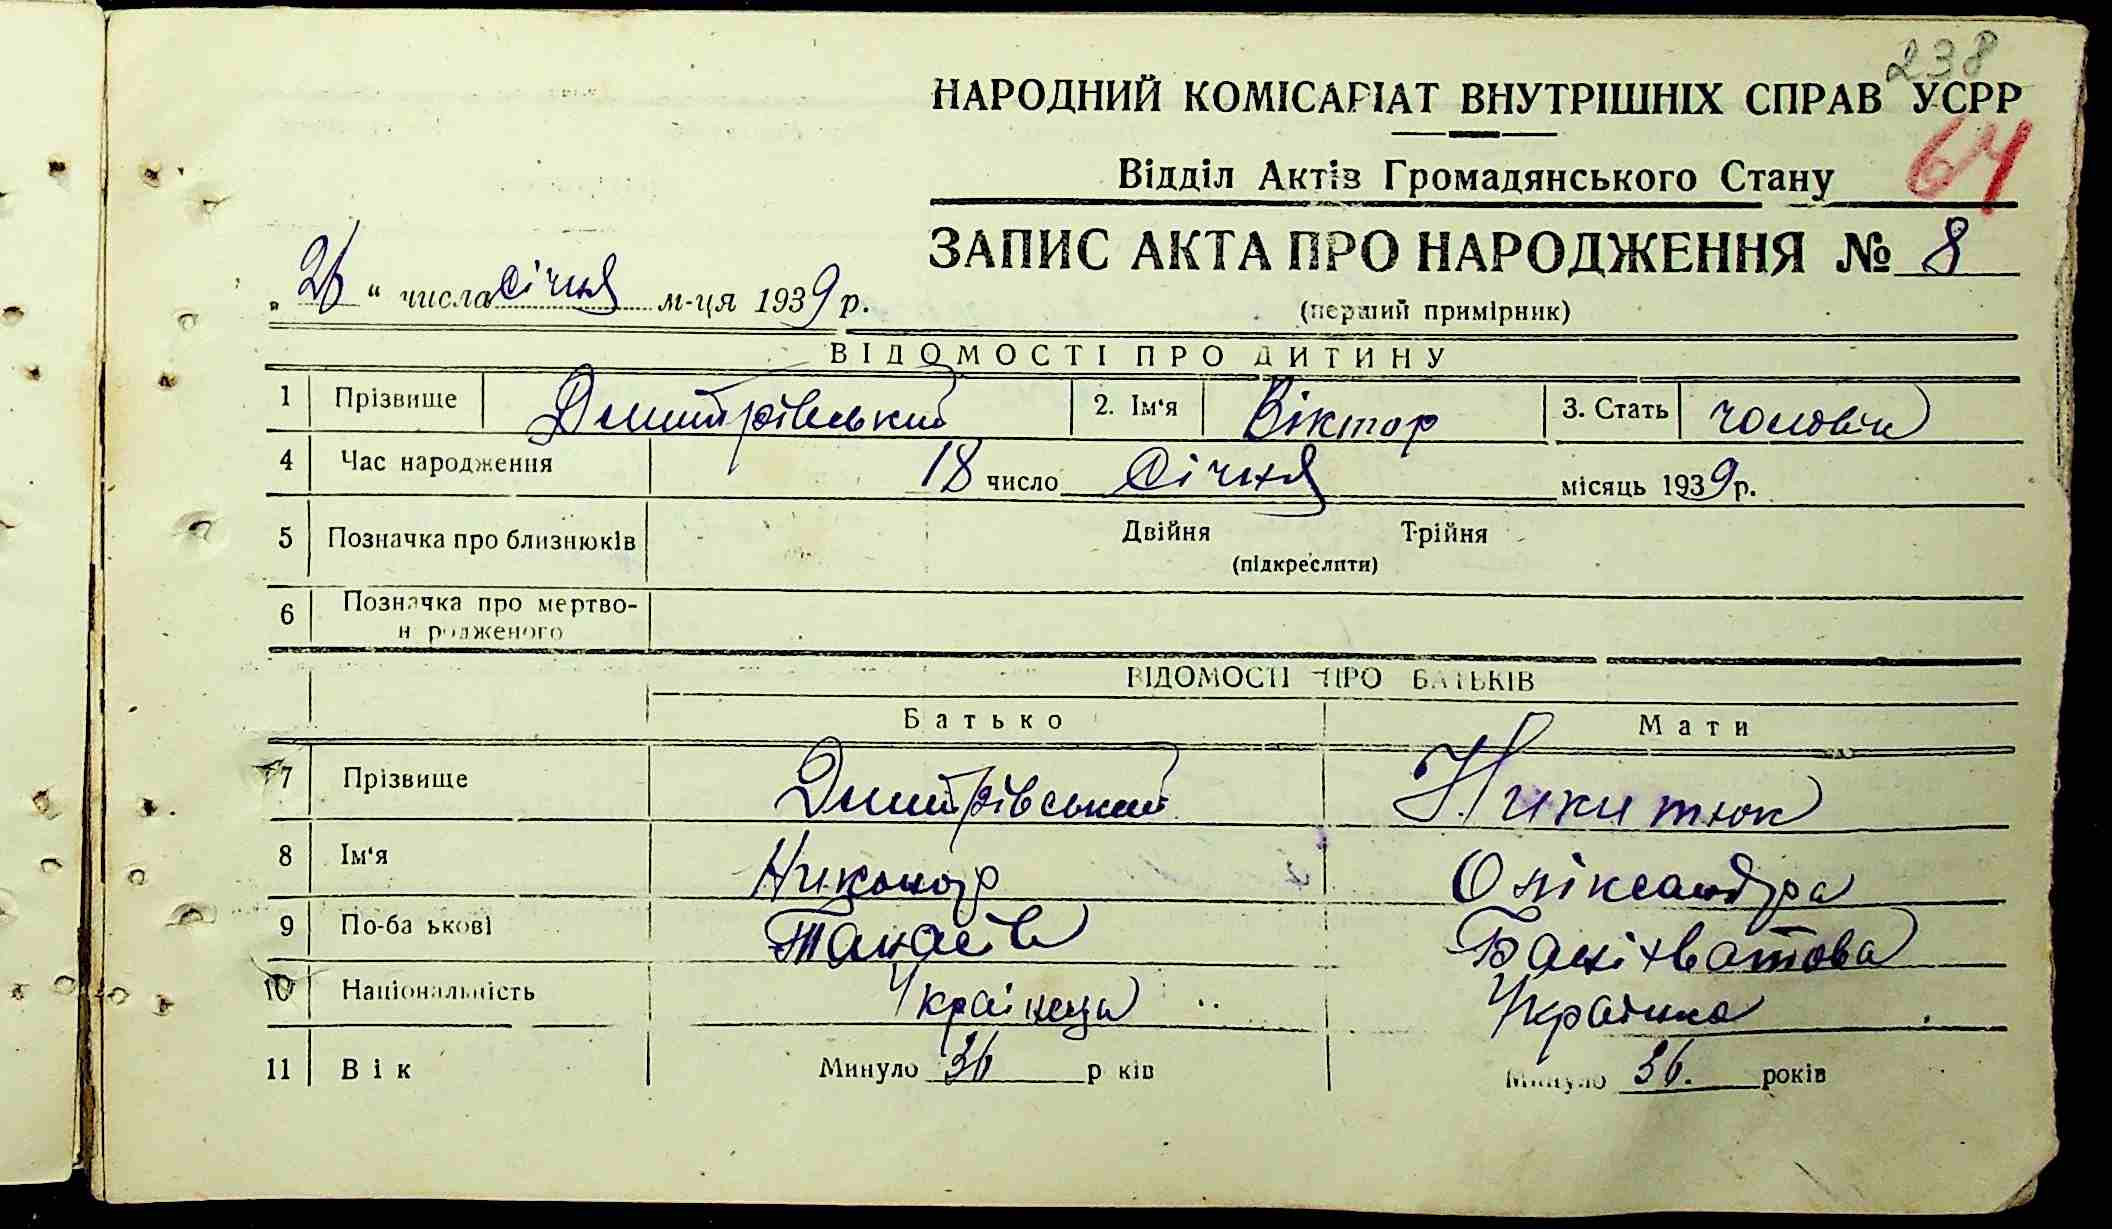 238
НАРОДНИЙ КОМІСАРІАТ ВНУТРІШНІХ СПРАВ УСРР
64
Відділ Актів Громадянського Стану
ЗАПИС АКТА ПРО НАРОДЖЕННЯ № 8
„26“ числа січня м-ця 1939 р.
(перший примірник)
ВІДОМОСТІ ПРО ДИТИНУ
1 Прізвище Дмитрівський 2. Ім'я Віктор 3. Стать чоловіч
4 Час народження 18 число січня місяць 1939 р.
5 Позначка про близнюків Двійня Трійня
(підкреслити)
6 Позначка про мертво-
н родженого
ВІДОМОСТІ ПРО БАТЬКІВ
Батько Мати
7 Прізвище Дмитрівський Никитюк
8 Ім'я Никонор Оліксандра
9 По-ба ькові Танасів
10 Національність Українець Українка
11 Вік Минуло 36 р ків Минуло 36. років